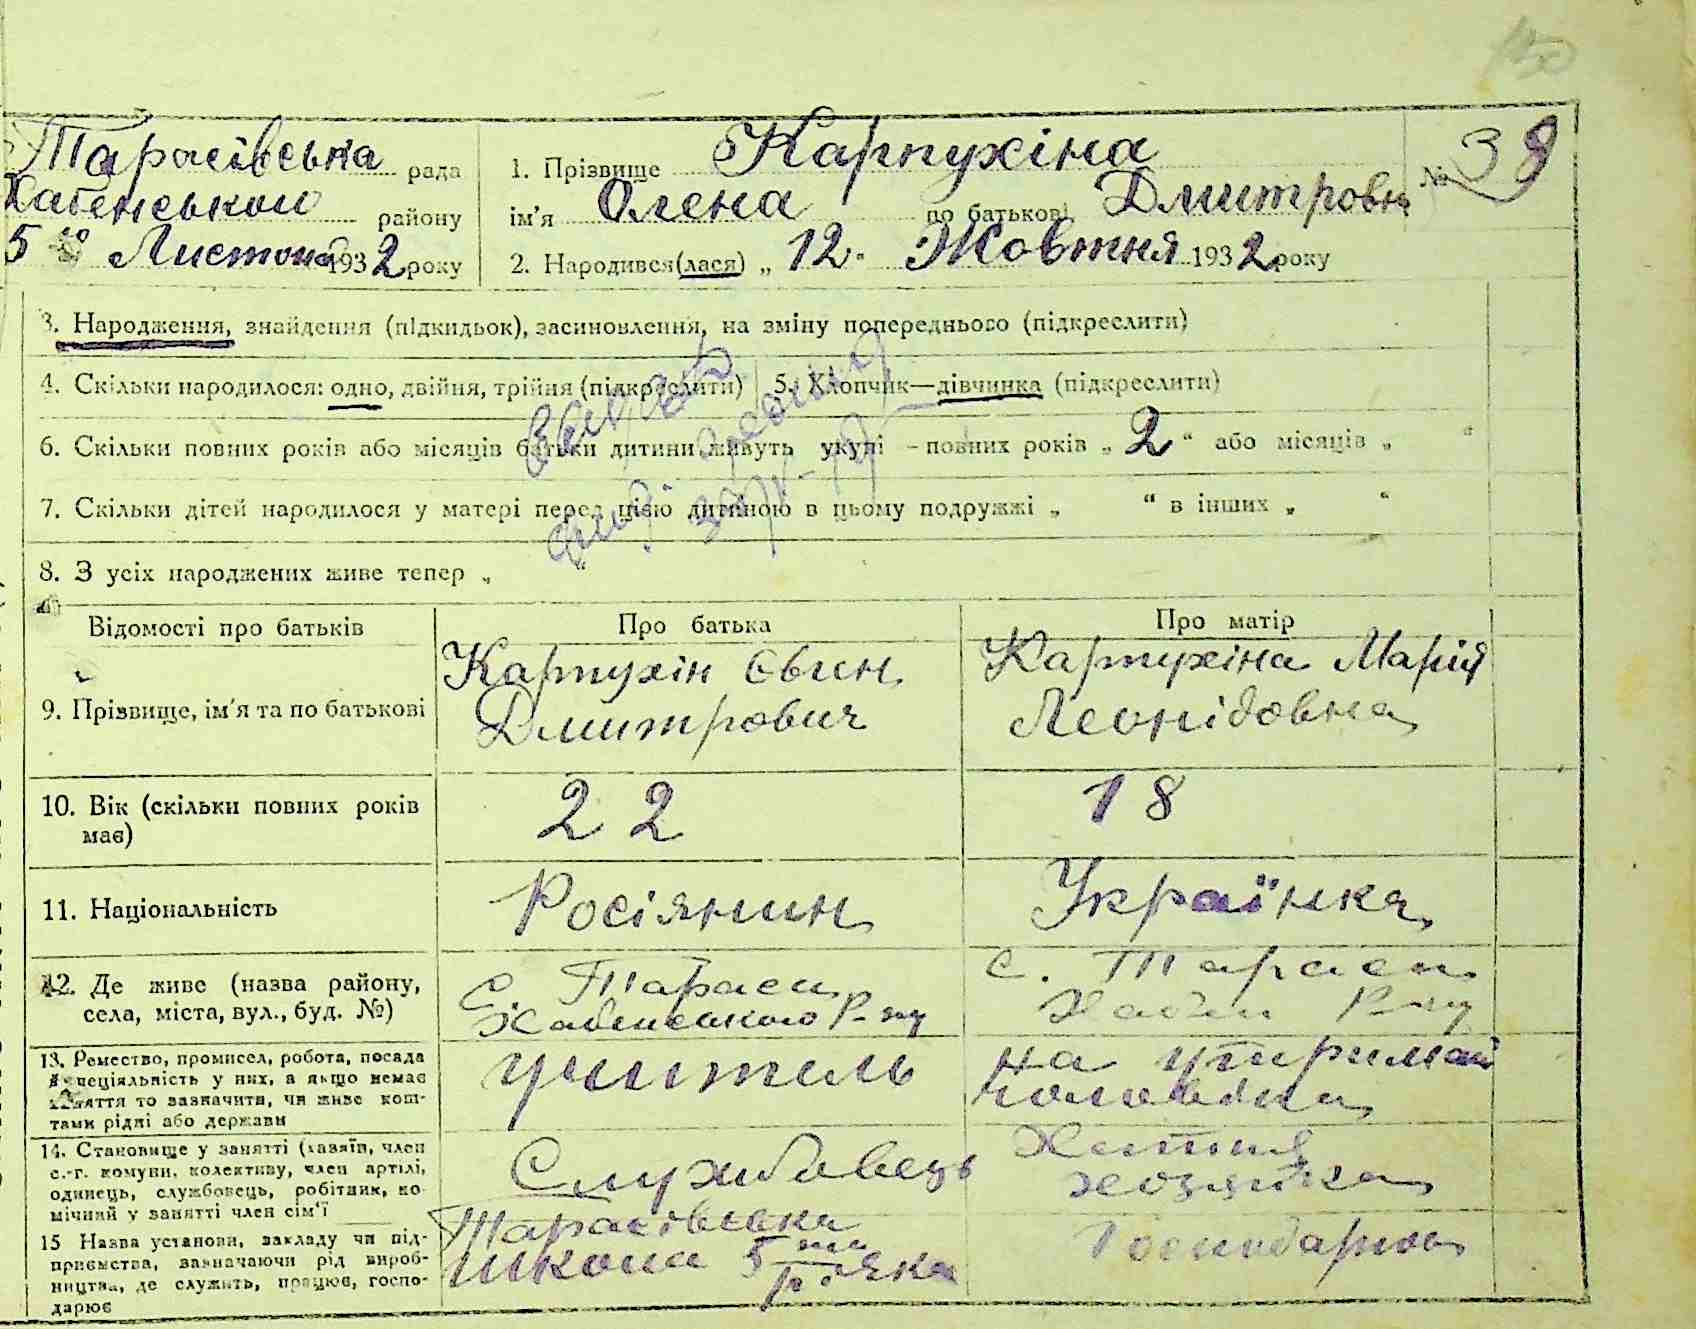 150
Тарасівська рада
Хабенського району
5 го Листопа 1932 року
1. Прізвище Карпухіна
№ 38
ім'я Олена по батькові Дмитровн
2. Народився(лася) „12" Жовтня 1932 року
3. Народження, знайдення (підкидьок), засиновлення, на зміну попереднього (підкреслити)
4. Скільки народилося: одно, двійня, трійня (підкреслити)
5. Хлопчик—дівчинка (підкреслити)
6. Скільки повних років або місяців батьки дитини живуть укупі – повних років „2“ або місяців „ “
7. Скільки дітей народилося у матері перед цією дитиною в цьому подружжі „ “ в інших „ “
8. З усіх народжених живе тепер „ “
Відомості про батьків
Про батька
Про матір
9. Прізвище, ім'я та по батькові
Карпухін Євген
Дмитрович
Карпухіна Марія
Леонідовна
10. Вік (скільки повних років
має)
22
18
11. Національність
Росіянин
Українка
12. Де живе (назва району,
села, міста, вул., буд. №)
С. Тараси
Хабенського Р-ну
с. Тараси
Хабен Р-ну
13. Ремество, промисел, робота, посада
спеціяльність у них, а якщо немає
заняття то зазначити, чи живе кош-
тами рідні або держави
учитель
на утриман
чоловіка
14. Становище у занятті (хазяїн, член
с.-г. комуни, колективу, член артілі,
одинець, службовець, робітник, по-
мічний у занятті член сім'ї
Службовець
Хатня
хозяйка
15 Назва установи, закладу чи під-
приємства, зазначаючи рід вироб-
ництва, де служить, працює, госпо-
дарює
Тарасівська
школа 5ти
р.чка
Господарка